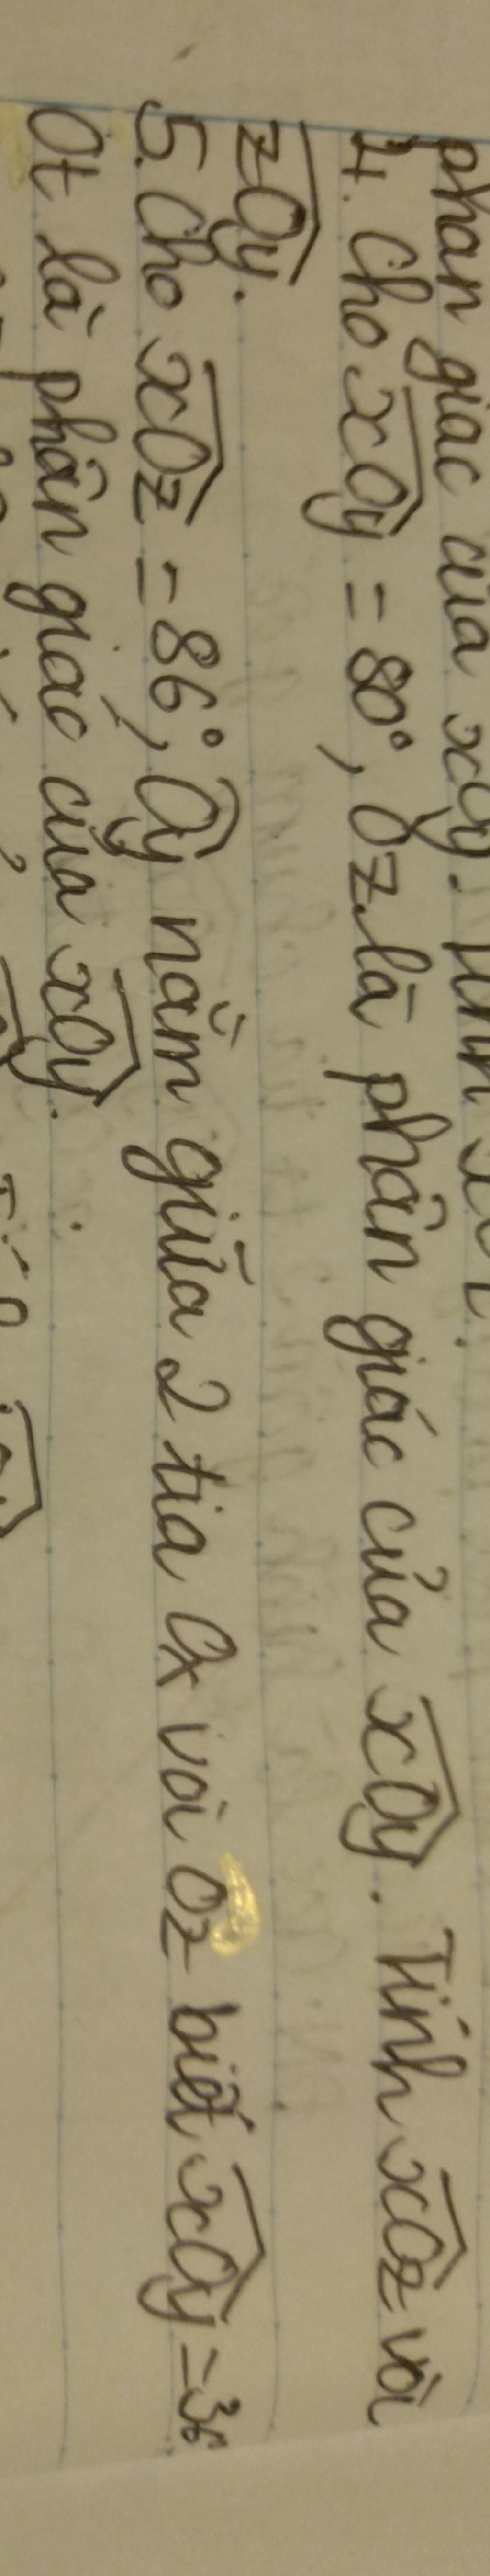 phân giác của xOy. Tính
4. Cho xOy = 80°, Oz là phân giác của xOy. Tính xOz và
zOy.
5. Cho xOz = 86°, Oy nằm giữa 2 tia Ox và Oz biết xOy = 36
Ot là phân giác của xOy.